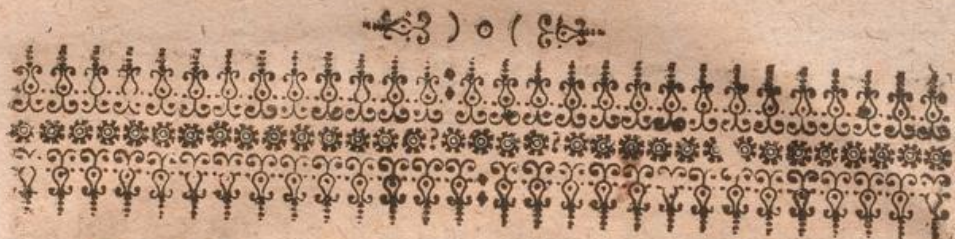 ) o (